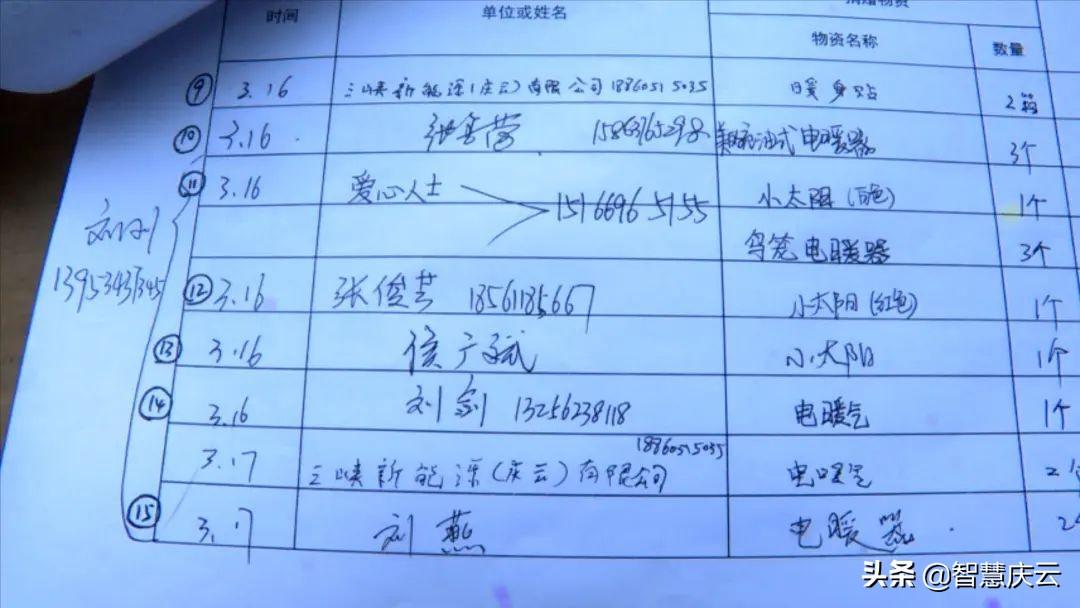 时间 单位或姓名 捐赠物资
物资名称 数量
⑨ 3.16 三峡新能源(庆云)有限公司 18860515035 暖身贴 2箱
⑩ 3.16 15863765298 油式电暖器 3个
⑪ 3.16 爱心人士 15166965155 小太阳(白色) 1个
鸟笼电暖器 3个
刘
⑫ 3.16 张俊芸 18561185667 小太阳(红色) 1个
⑬ 3.16 侯广斌 小太阳 1个
⑭ 3.16 刘剑 13256238118 电暖气 1个
3.17 三峡新能源(庆云)有限公司 18860515035 电暖气 2
⑮ 3.17 刘燕 电暖器 2
头条 @智慧庆云